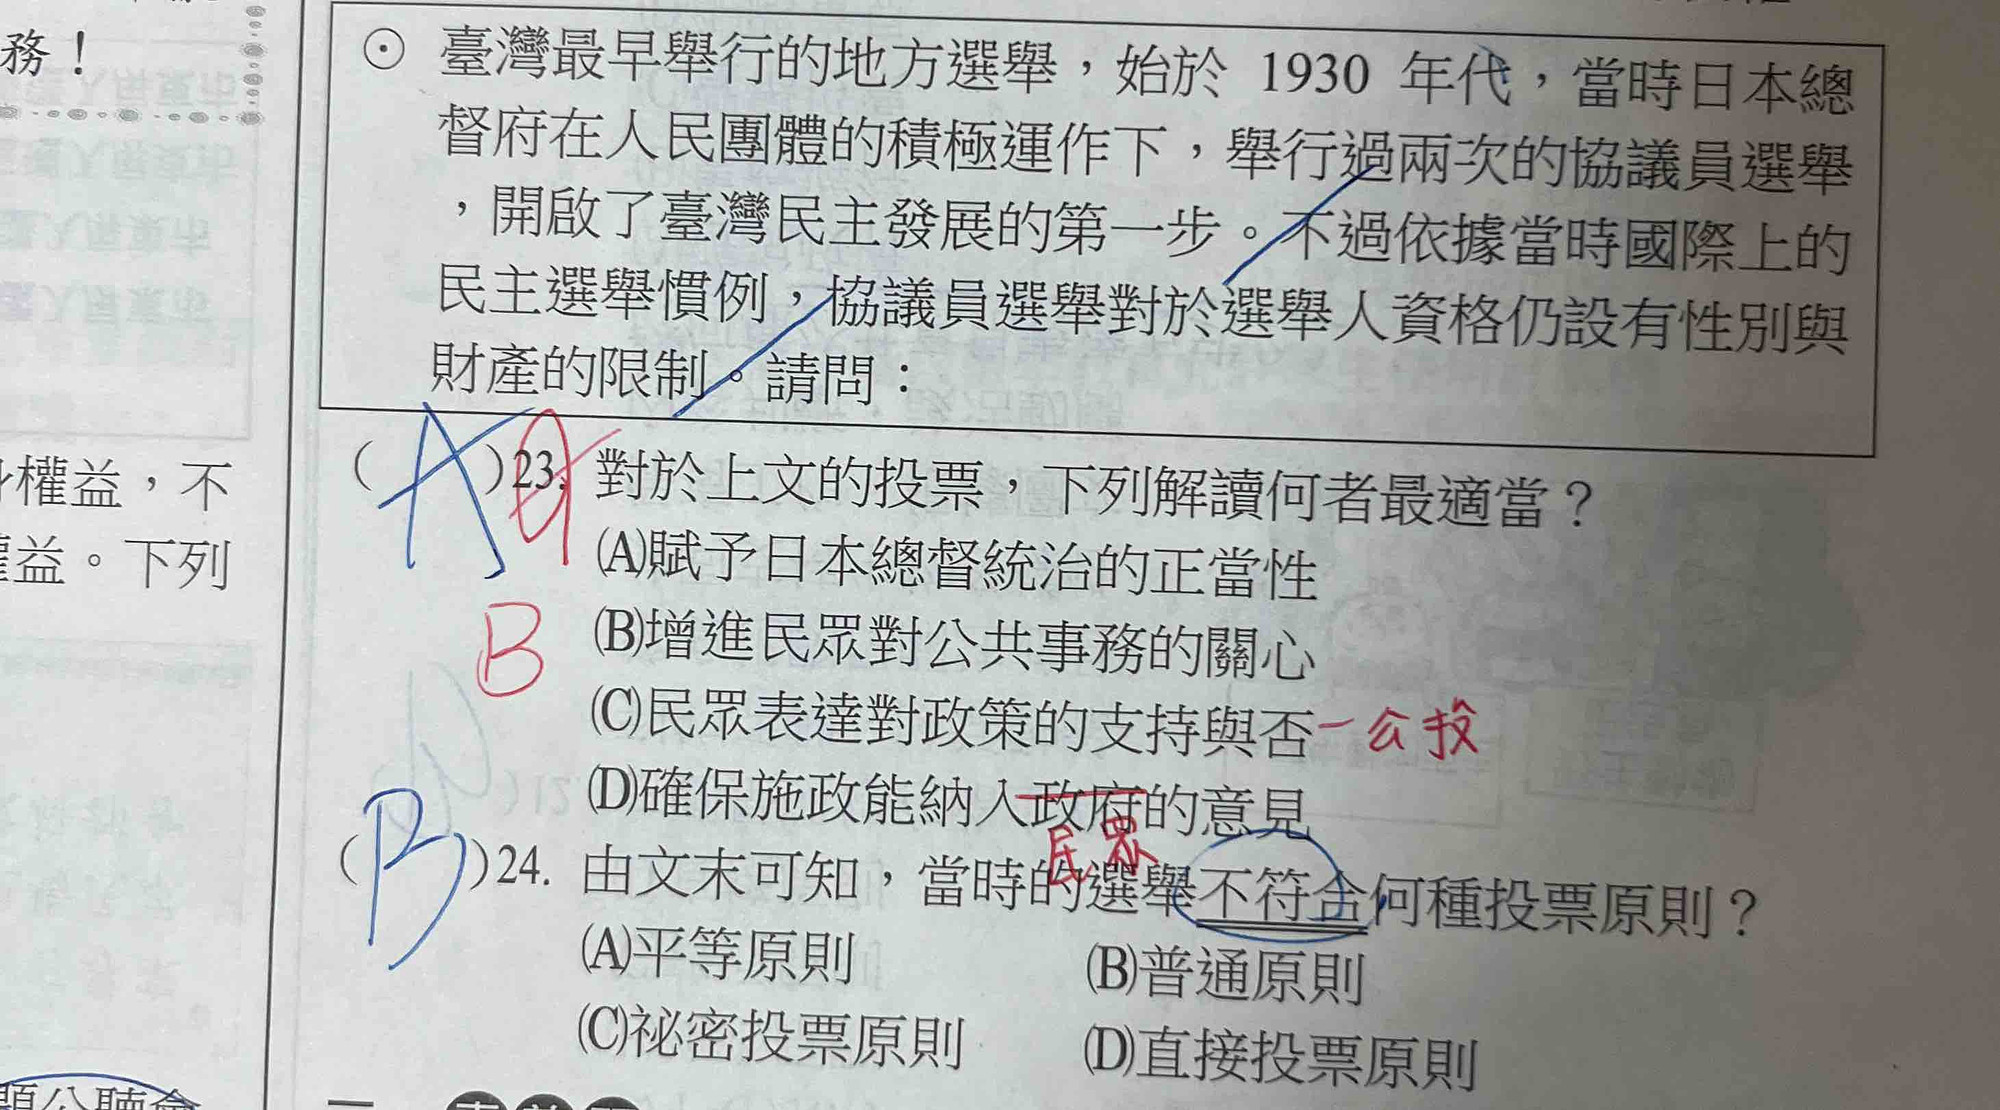 務！
⊙ 臺灣最早舉行的地方選舉，始於 1930 年代，當時日本總
督府在人民團體的積極運作下，舉行過兩次的協議員選舉
，開啟了臺灣民主發展的第一步。不過依據當時國際上的
民主選舉慣例，協議員選舉對於選舉人資格仍設有性別與
財產的限制。請問：
權益，不
益。下列
( A )23. 對於上文的投票，下列解讀何者最適當？
(A)賦予日本總督統治的正當性
B
(B)增進民眾對公共事務的關心
(C)民眾表達對政策的支持與否－公投
(D)確保施政能納入政府的意見
民眾
( B )24. 由文末可知，當時的選舉不符合何種投票原則？
(A)平等原則 (B)普通原則
(C)祕密投票原則 (D)直接投票原則
題公聽會